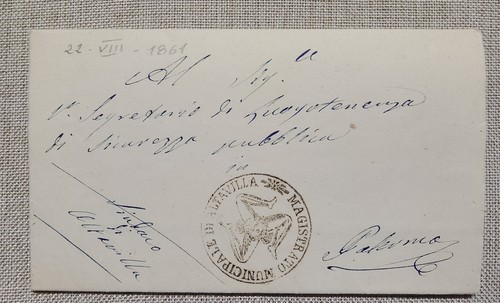 22 - VIII - 1861
Al Sig.r
1º. Segretario di Luogotenenza
di Sicurezza pubblica
in
Palermo
Sindaco
di
Altavilla
MAGISTRATO MUNICIPALE DI ALTAVILLA